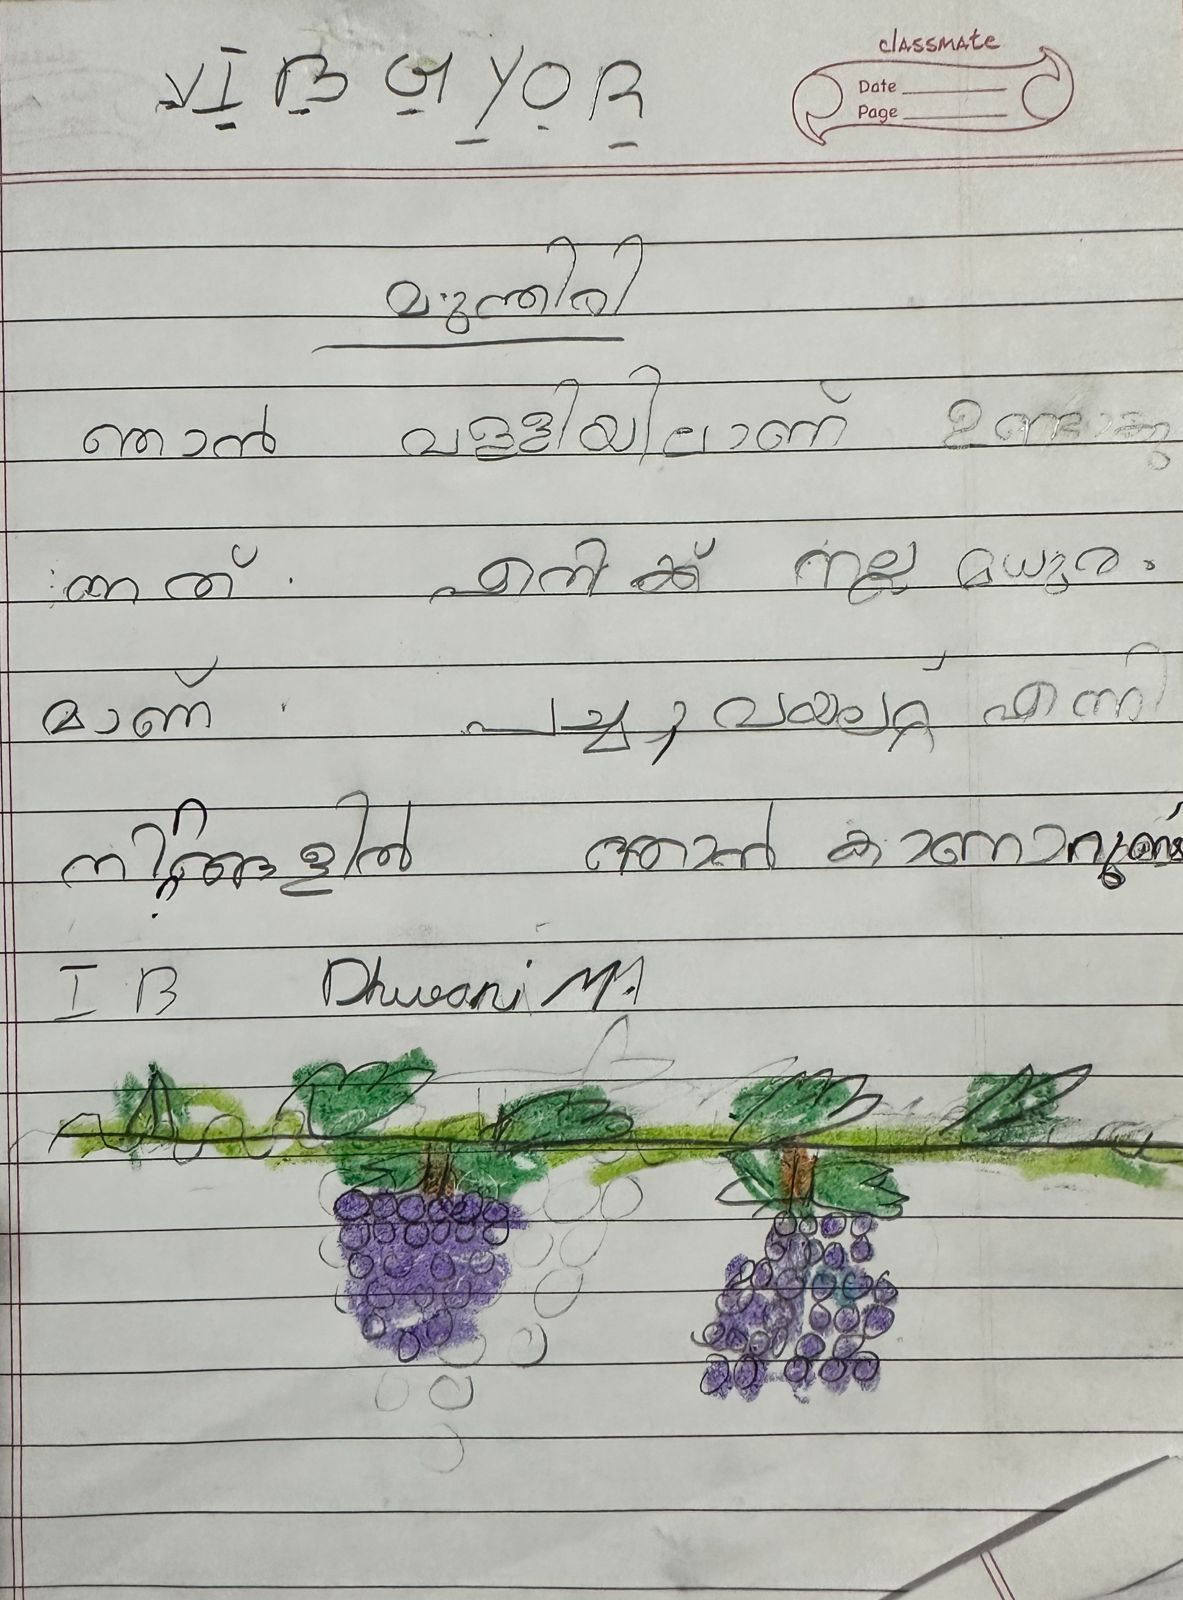 VIBGYOR
classmate
Date
Page
മുന്തിരി
ഞാൻ വള്ളിയിലാണ് ഉണ്ടാകു
ന്നത്. എനിക്ക് നല്ല മധുര.
മാണ്. പച്ച, വയലറ്റ് എന്നി
നിറങ്ങളിൽ ഞാൻ കാണാറുണ്ട്
I B Dhwani M.A